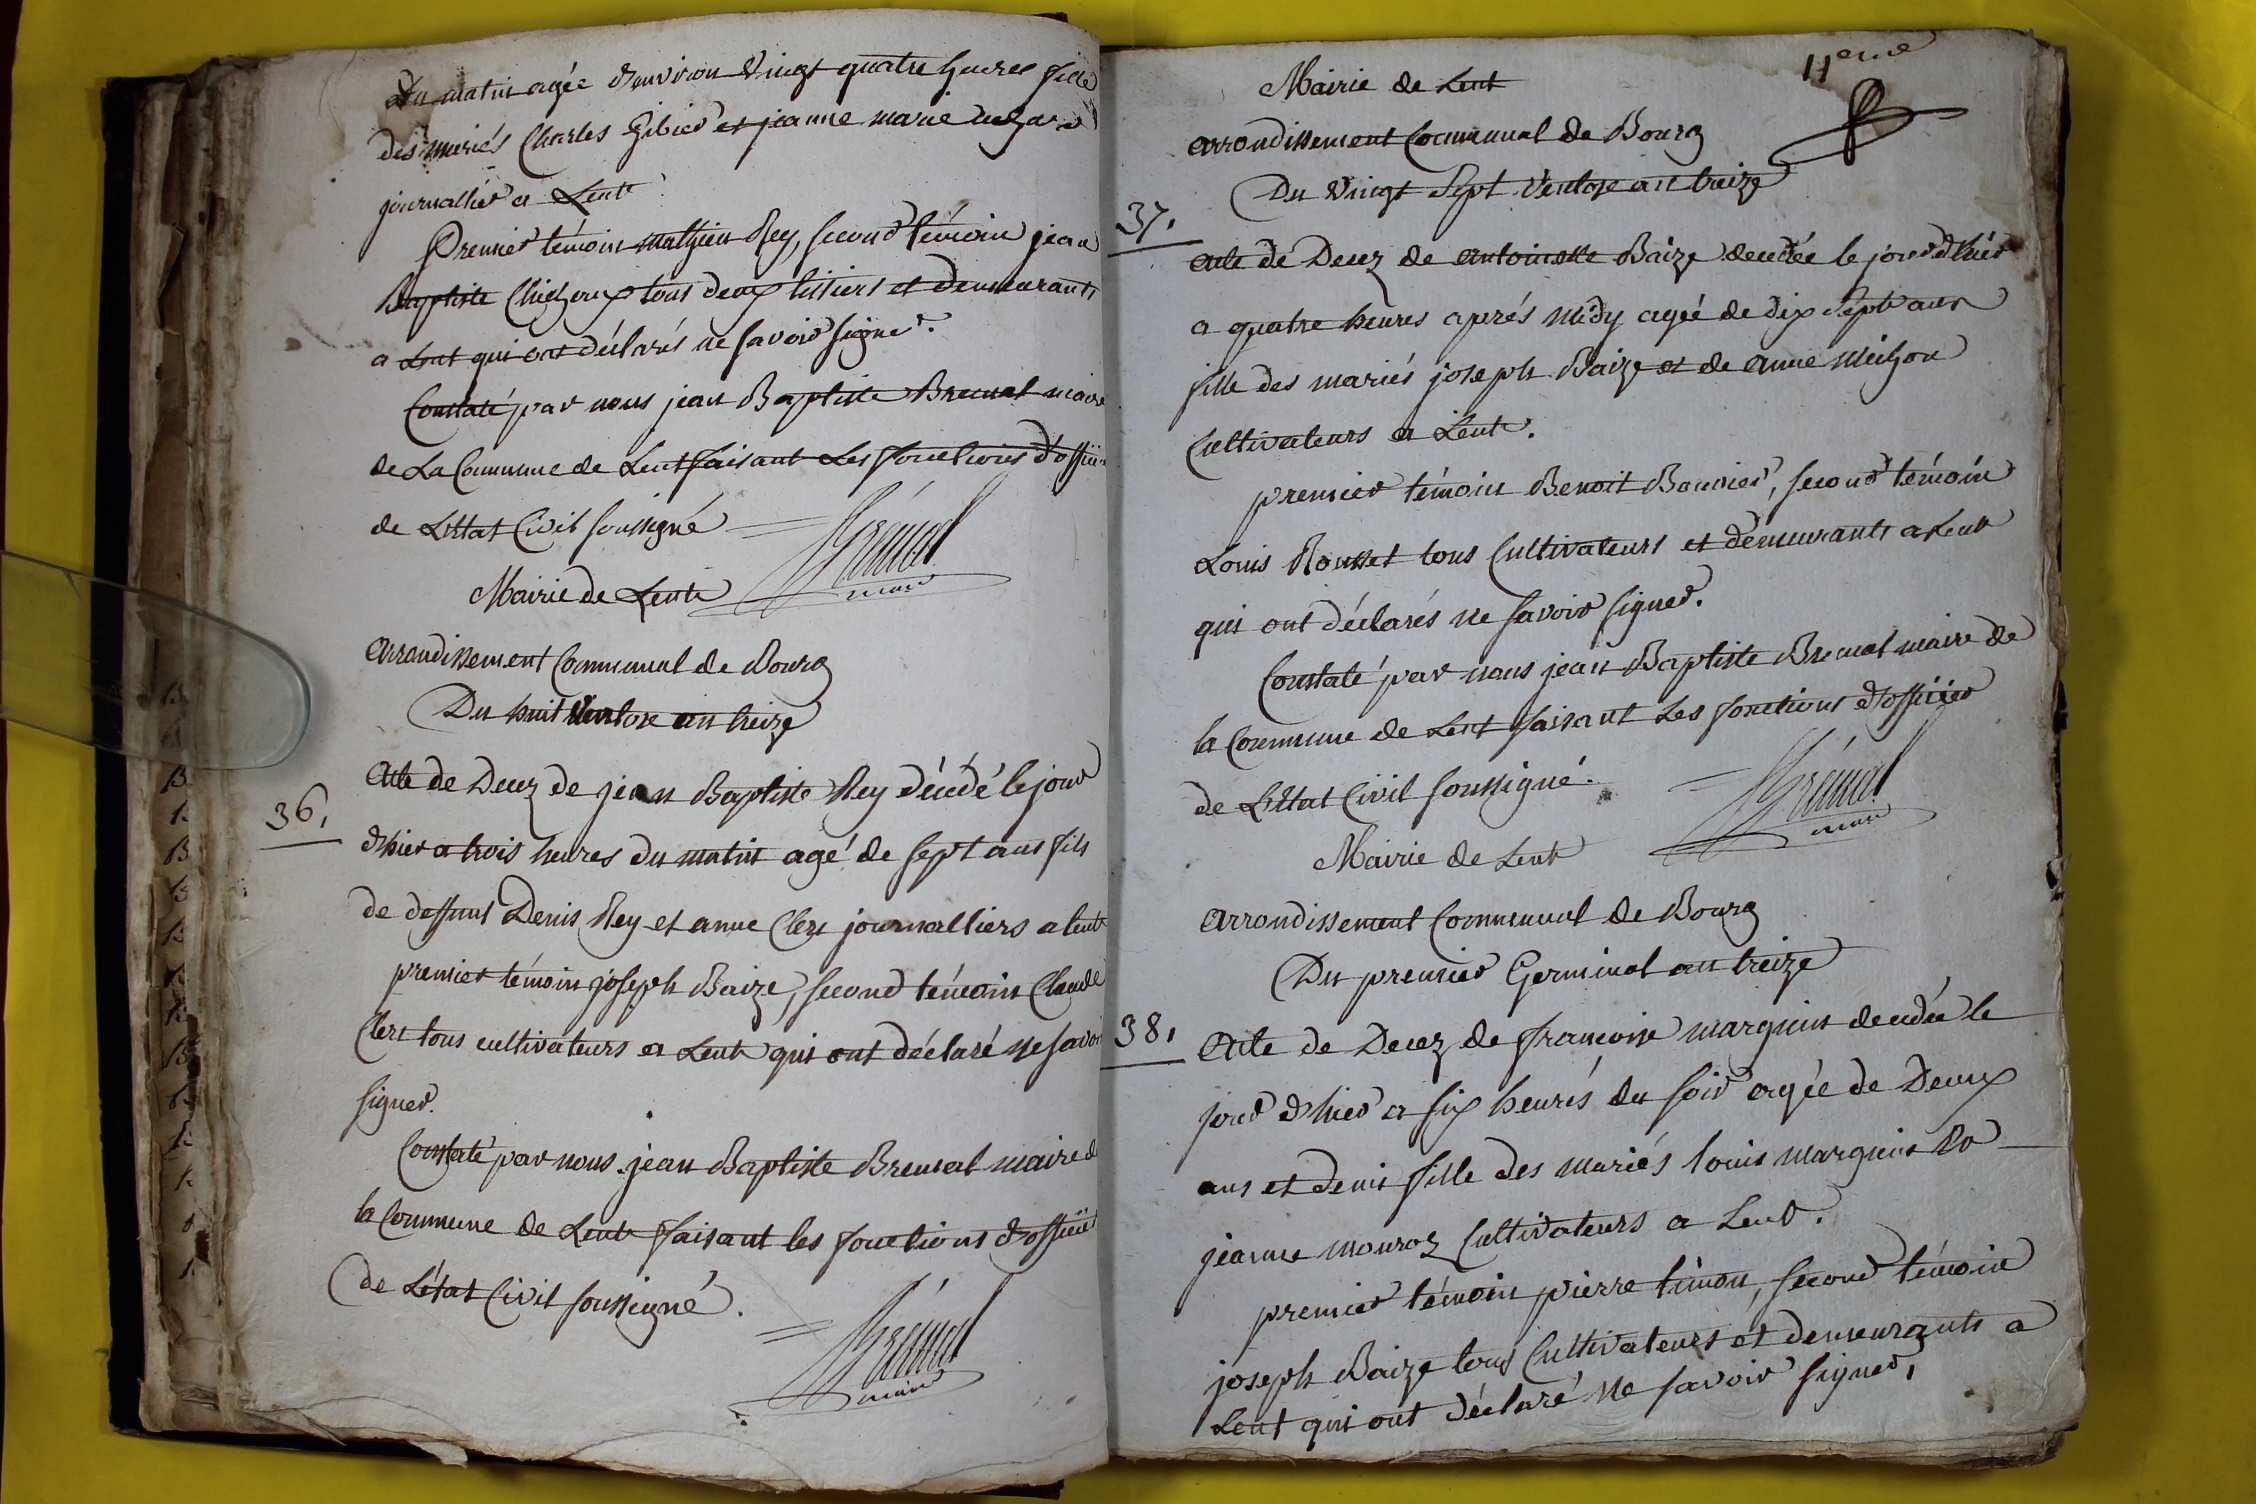 Du matin agée d'environ vingt quatre heures fille
des mariés Charles Gibier et jeanne marie
journallier a Lent
Premier témoin mathieu Rey, second témoin jean
Baptiste Chighoux tous deux tissiers et demeurants
a Lent qui ont déclarés ne savoir signer.
Constaté par nous jean Baptiste Bremal maire
de La Commune de Lent faisant Les fonctions d'officier
de L'Etat Civil soussigné
Brémal
maire
Mairie de Lent
arrondissement Communal de Bourg
Du huit Ventose an treize
36,
Acte de Decez de jean Baptiste Rey décédé le jour
d'hier a trois heures du matin agé de sept ans fils
de deffunt Denis Rey et anne Clerc journalliers a lent
premier témoin joseph Baize, second témoin Claude
Clerc tous cultivateurs a Lent qui ont déclaré ne savoir
signer.
Constaté par nous jean Baptiste Bremal maire de
la Commune de Lent faisant les fonctions d'officier
de L'état Civil soussigné.
Brémal
maire
11eme
Mairie de Lent
arrondissement Communal de Bourg
Du vingt Sept Ventose an treize
37,
acte de Decez de antoinette Baize decedée le jour d'hier
a quatre heures aprés midy agée de dix Sept ans
fille des mariés joseph Baize et de anne Michon
Cultivateurs a Lent.
premier témoin Benoit Bouvier, second témoin
Louis Rousset tous Cultivateurs et demeurants a Lent
qui ont déclarés ne savoir signer.
Constaté par nous jean Baptiste Bremal maire de
la Commune de Lent faisant Les fonctions d'officier
de L'Etat Civil soussigné.
Brémal
maire
Mairie de Lent
arrondissement Communal de Bourg
Du premier Germinal an treize
38,
Acte de Decez de francoise marguin decedée le
jour d'hier a six heures du soir agée de Deux
ans et demi fille des mariés louis marguin &
jeanne monroz Cultivateurs a Lent.
premier témoin pierre timon, second témoin
joseph Baize tous Cultivateurs et demeurants a
Lent qui ont déclaré ne savoir signer,